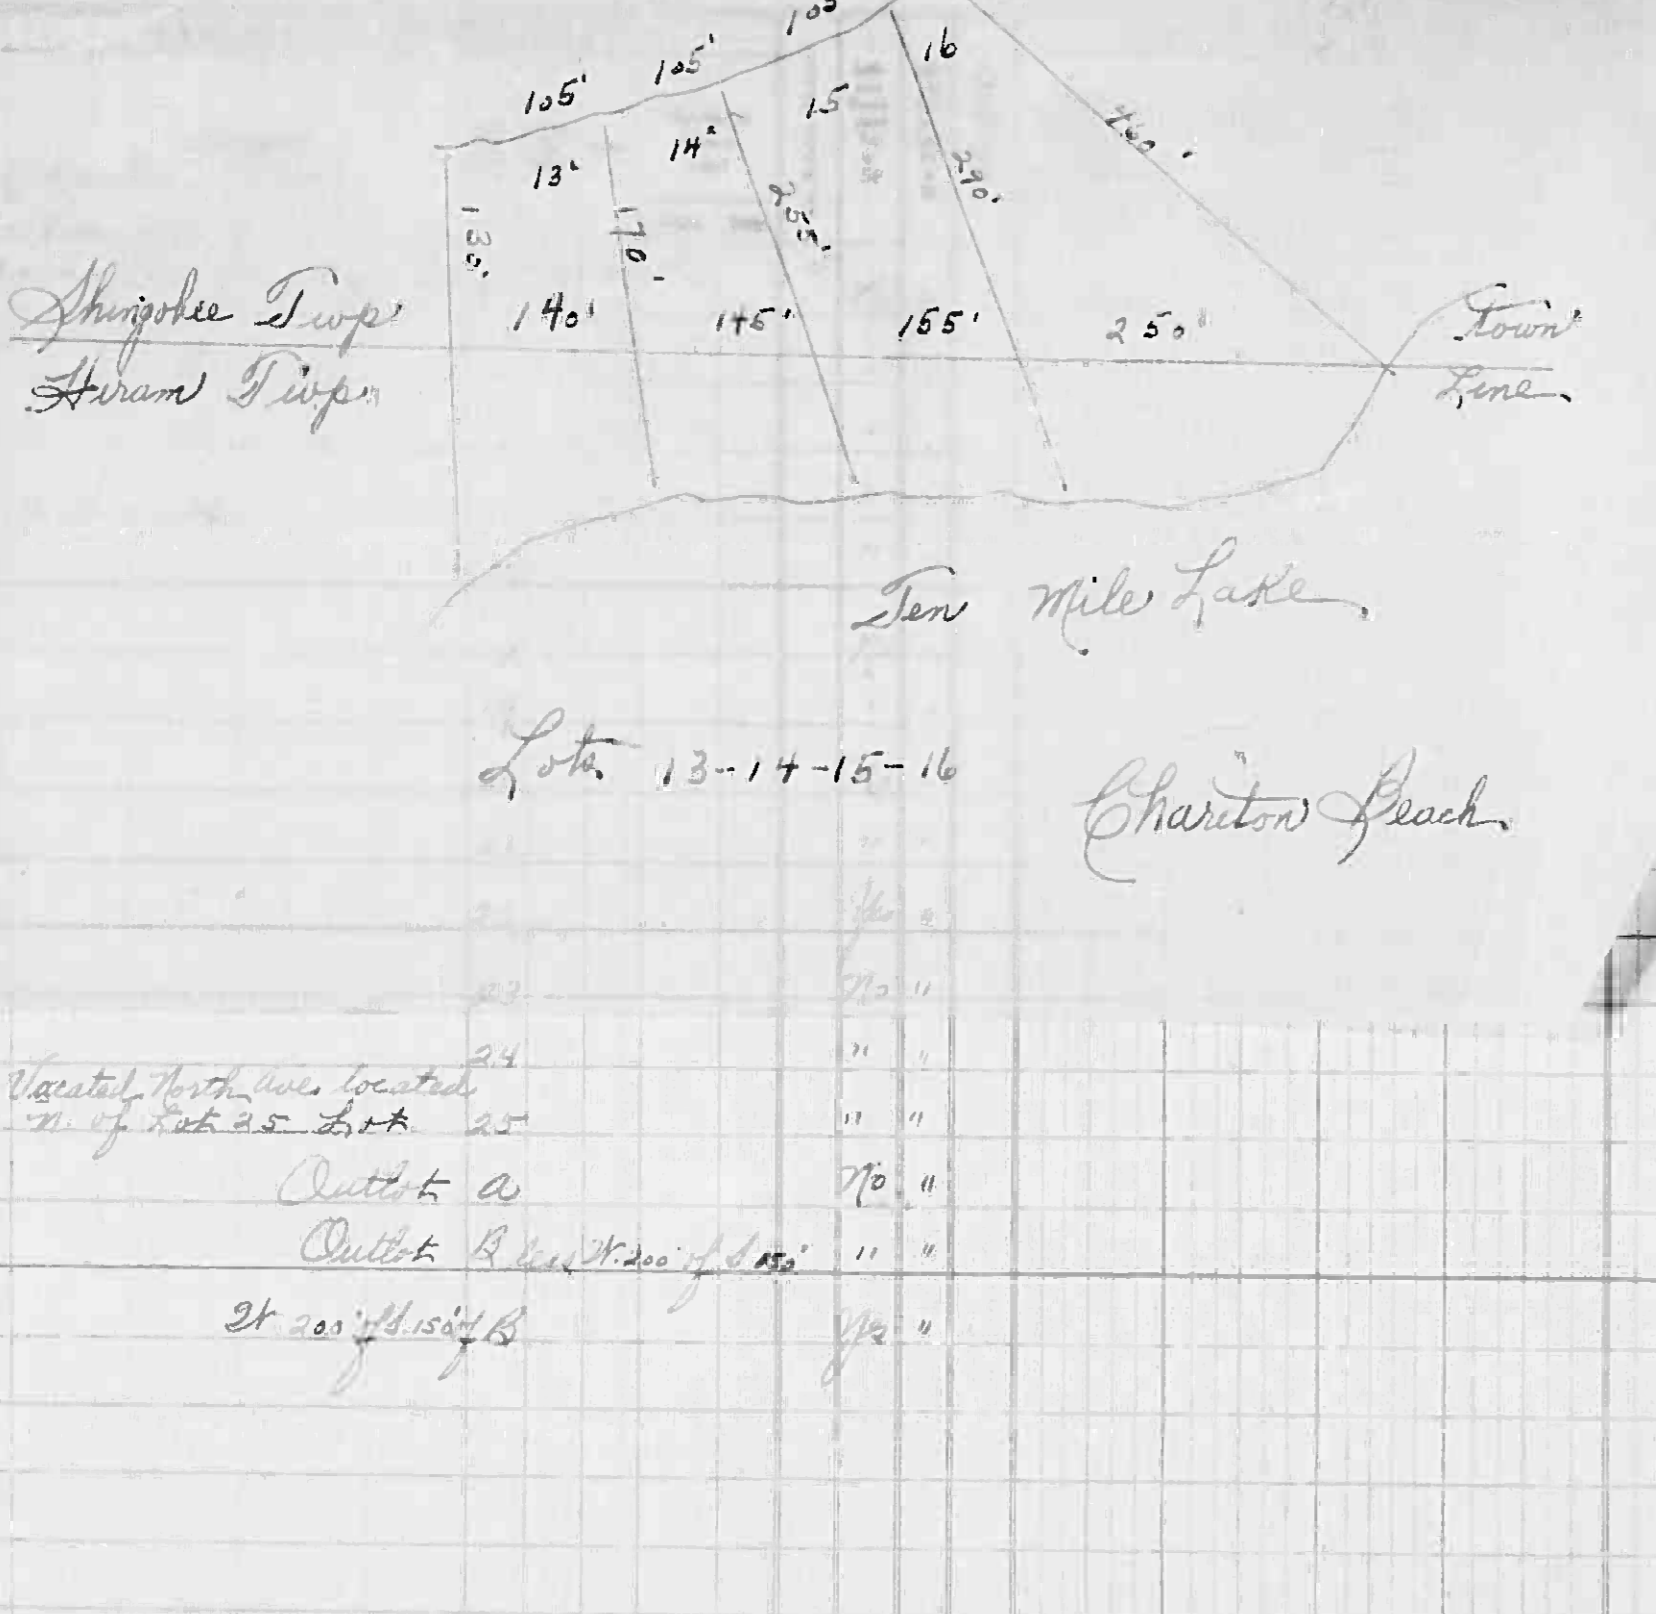 105'
105'
105
16
15
14'
13'
460'
290'
255'
170'
130'
Shingobee Twp.
140'
145'
155'
250'
Town
Hiram Twp.
Line
Ten Mile Lake
Lots 13-14-15-16
Chariton Beach
Yes "
23 No "
24 " "
Vacated North Ave. located
N. of Lot 25 Lot 25 " "
Outlot A No "
Outlot B less W. 200' of S 150' " "
W 200' of S. 150' of B Yes "